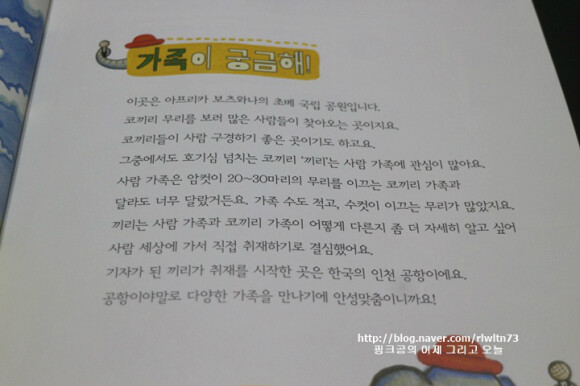 가족이 궁금해!
이곳은 아프리카 보츠와나의 초베 국립 공원입니다.
코끼리 무리를 보러 많은 사람들이 찾아오는 곳이지요.
코끼리들이 사람 구경하기 좋은 곳이기도 하고요.
그중에서도 호기심 넘치는 코끼리 '끼리'는 사람 가족에 관심이 많아요.
사람 가족은 암컷이 20~30마리의 무리를 이끄는 코끼리 가족과
달라도 너무 달랐거든요. 가족 수도 적고, 수컷이 이끄는 무리가 많았지요.
끼리는 사람 가족과 코끼리 가족이 어떻게 다른지 좀 더 자세히 알고 싶어
사람 세상에 가서 직접 취재하기로 결심했어요.
기자가 된 끼리가 취재를 시작한 곳은 한국의 인천 공항이에요.
공항이야말로 다양한 가족을 만나기에 안성맞춤이니까요!
http://blog.naver.com/rlwltn73
핑크곰의 어제 그리고 오늘